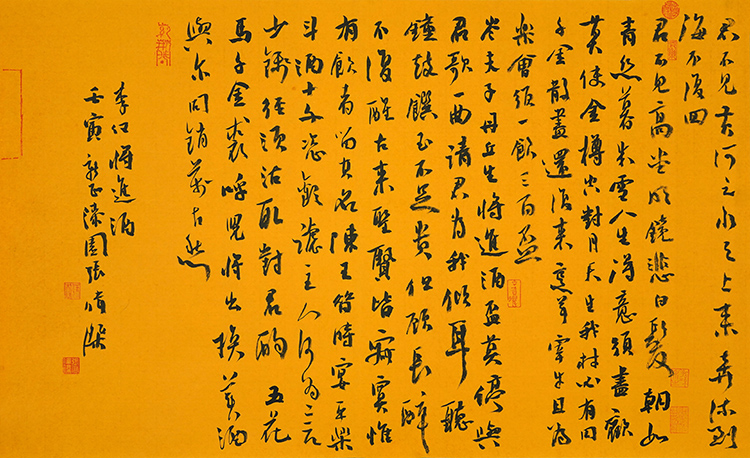 君不見黃河之水天上來奔流到
海不復回
君不見高堂明鏡悲白髮朝如
青絲暮成雪人生得意須盡歡
莫使金樽空對月天生我材必有用
千金散盡還復來烹羊宰牛且為
樂會須一飲三百盃
岑夫子丹丘生將進酒盃莫停與
君歌一曲請君為我傾耳聽
鐘鼓饌玉不足貴但願長醉
不復醒古來聖賢皆寂寞惟
有飲者留其名陳王昔時宴平樂
斗酒十千恣歡謔主人何為言
少錢徑須沽取對君酌五花
馬千金裘呼兒將出換美酒
與爾同銷萬古愁
李白將進酒
壬寅新正漆園張